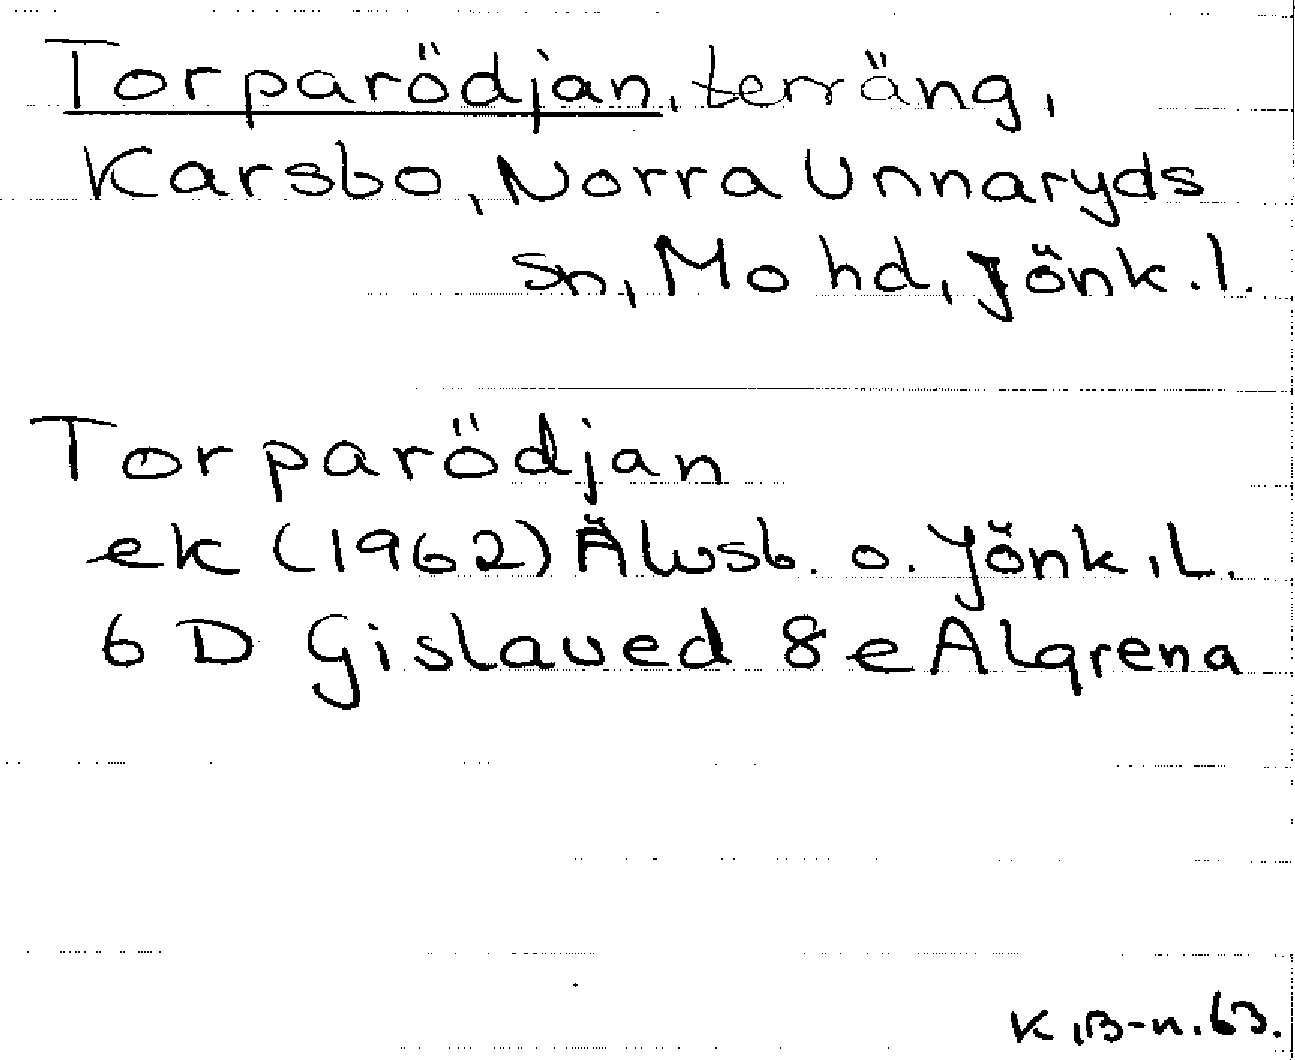 Torparödjan, terräng,
Karsbo, Norra Unnaryds
sn, Mo hd, Jönk.l.
Torparödjan
ek (1962) Älvsb. o. Jönk.L.
6 D Gislaved 8 e Algrena
K.B-n.63.